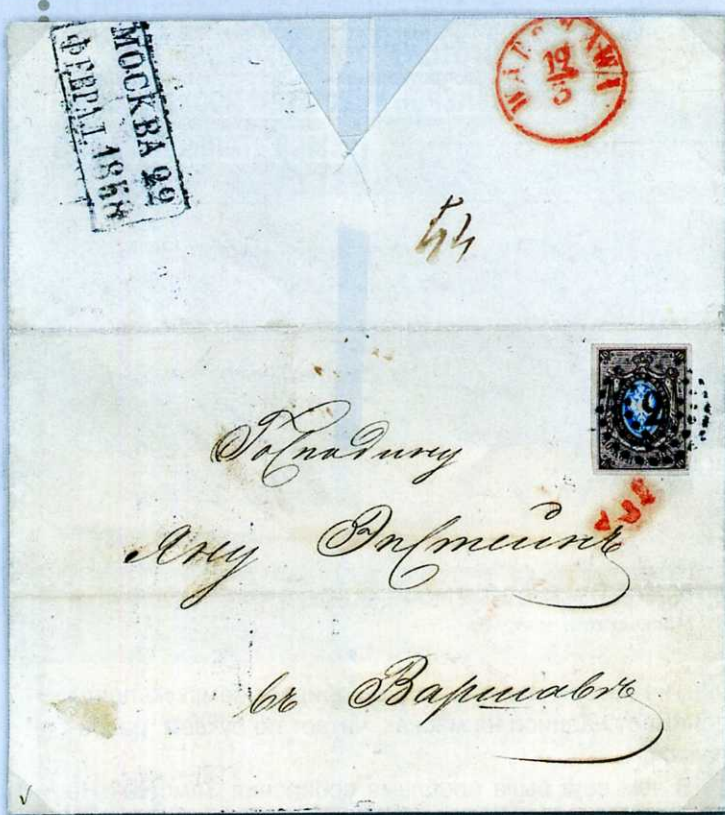 МОСКВА 22
ФЕВРАЛ 1858
WARSZAWA
12/3
Господину
Яну Эпстеинъ
въ Варшавѣ